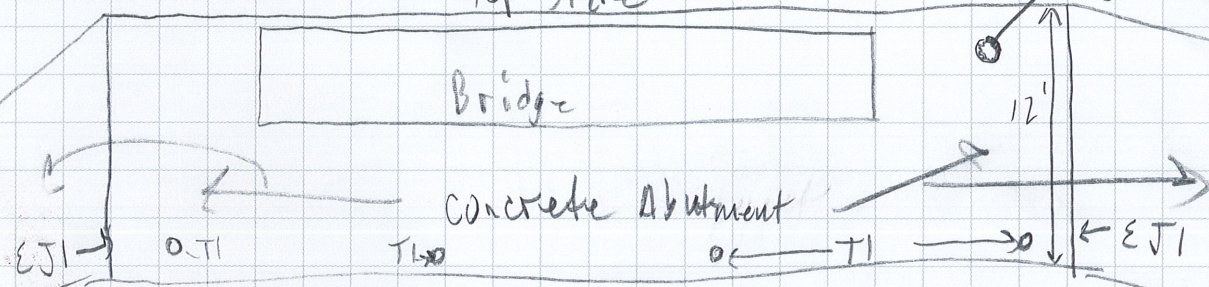 Bridge
12'
Concrete Abutment
EJ1
T1
T1
T1
EJ1